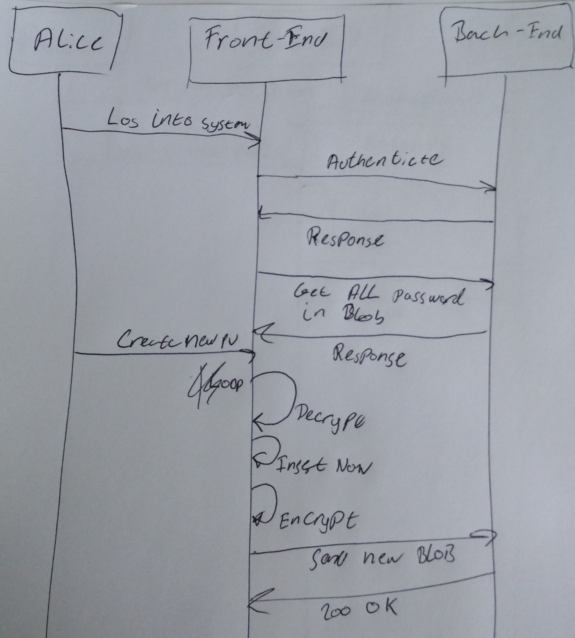 Alice
Front-End
Bach-End
Log into system
Authenticte
Response
Get ALL password
in Blob
Response
Create new
Decrypt
Insert New
Encrypt
new BLOB
200 OK